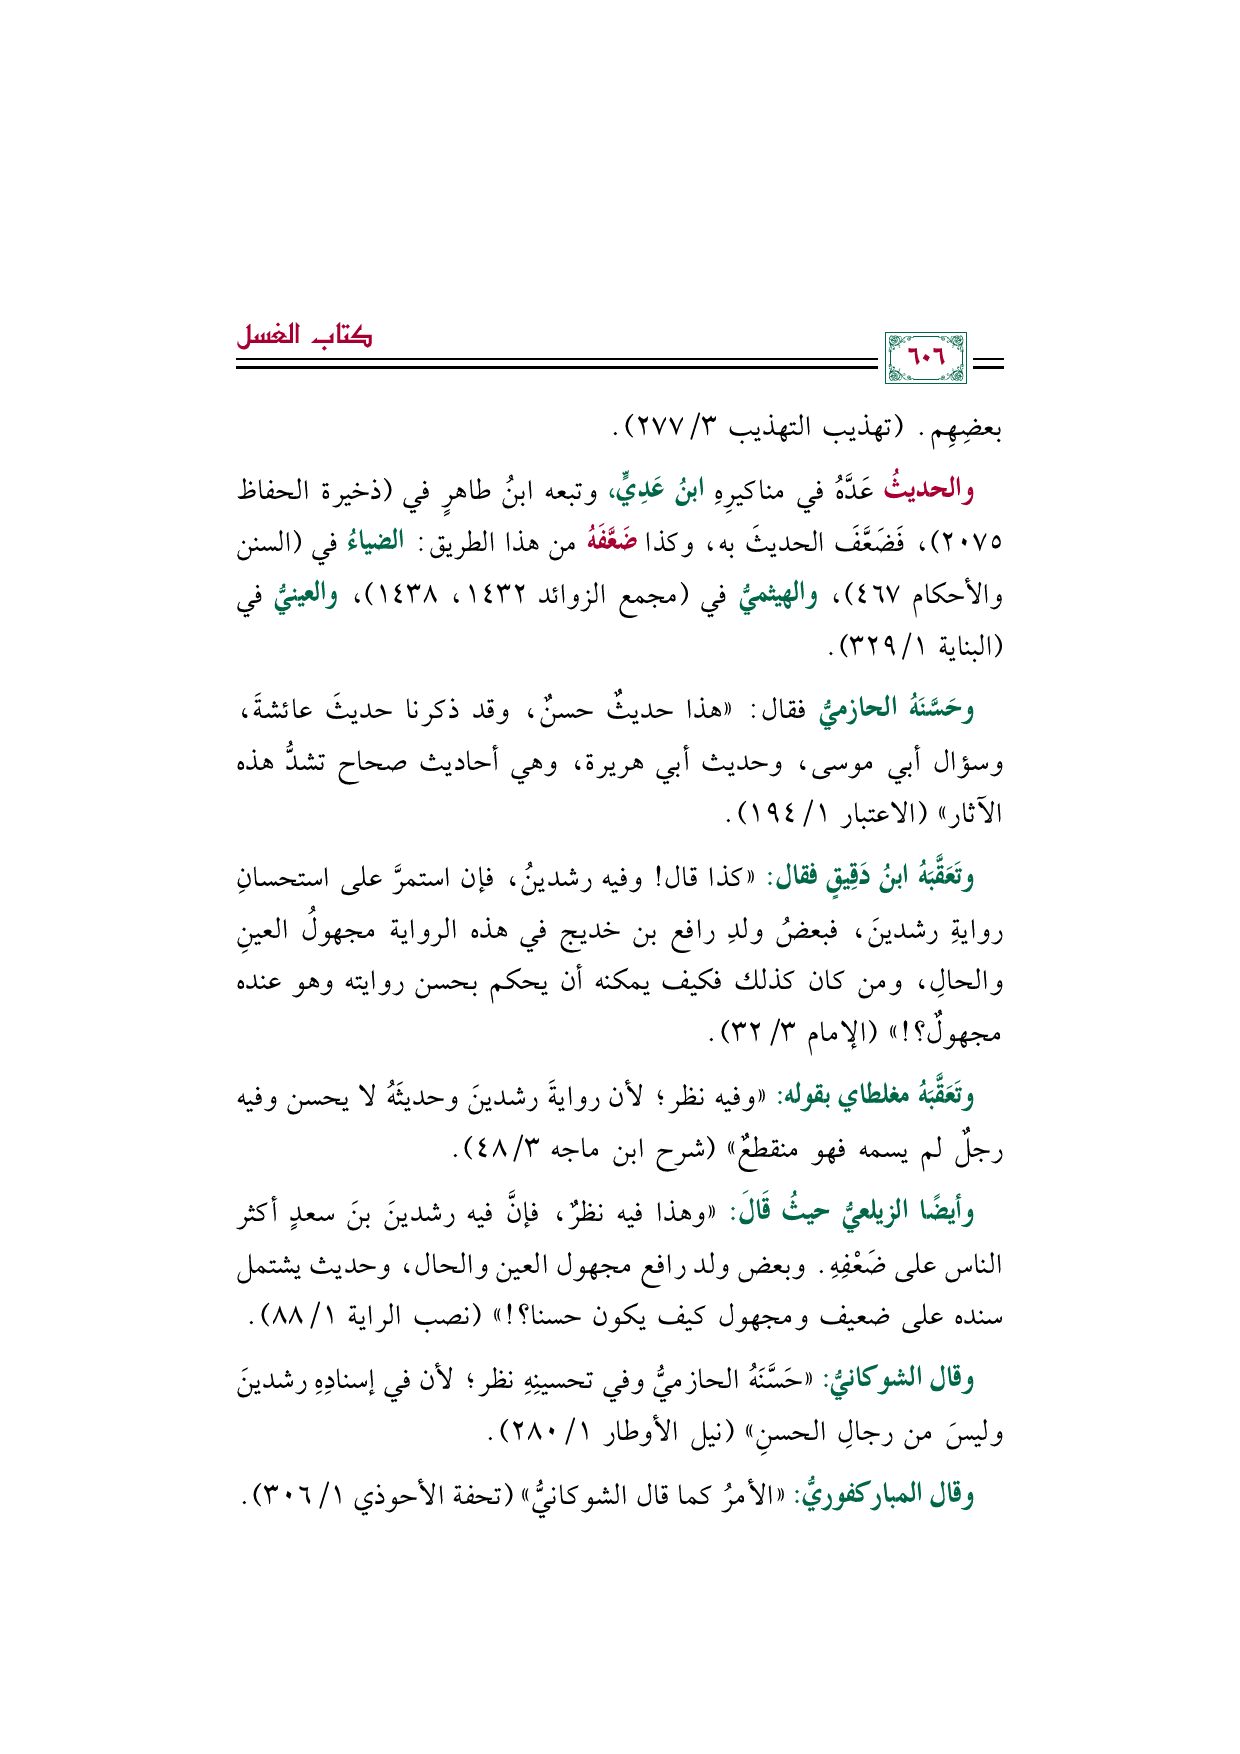 كتاب الغسل
٦٠٦
بعضِهِم. (تهذيب التهذيب ٣/ ٢٧٧).
والحديثُ عَدَّهُ في مناكيرِهِ ابنُ عَدِيٍّ، وتبعه ابنُ طاهرٍ في (ذخيرة الحفاظ
٢٠٧٥)، فَضَعَّفَ الحديثَ به، وكذا ضَعَّفَهُ من هذا الطريق: الضياءُ في (السنن
والأحكام ٤٦٧)، والهيثميُّ في (مجمع الزوائد ١٤٣٢، ١٤٣٨)، والعينيُّ في
(البناية ١/ ٣٢٩).
وحَسَّنَهُ الحازميُّ فقال: «هذا حديثٌ حسنٌ، وقد ذكرنا حديثَ عائشةَ،
وسؤال أبي موسى، وحديث أبي هريرة، وهي أحاديث صحاح تشدُّ هذه
الآثار» (الاعتبار ١/ ١٩٤).
وتَعَقَّبَهُ ابنُ دَقِيقٍ فقال: «كذا قال! وفيه رشدينُ، فإن استمرَّ على استحسانِ
روايةِ رشدينَ، فبعضُ ولدِ رافع بن خديج في هذه الرواية مجهولُ العينِ
والحالِ، ومن كان كذلك فكيف يمكنه أن يحكم بحسن روايته وهو عنده
مجهولٌ؟!» (الإمام ٣/ ٣٢).
وتَعَقَّبَهُ مغلطاي بقوله: «وفيه نظر؛ لأن روايةَ رشدينَ وحديثَهُ لا يحسن وفيه
رجلٌ لم يسمه فهو منقطعٌ» (شرح ابن ماجه ٣/ ٤٨).
وأيضًا الزيلعيُّ حيثُ قَالَ: «وهذا فيه نظرٌ، فإنَّ فيه رشدينَ بنَ سعدٍ أكثر
الناس على ضَعْفِهِ. وبعض ولد رافع مجهول العين والحال، وحديث يشتمل
سنده على ضعيف ومجهول كيف يكون حسنا؟!» (نصب الراية ١/ ٨٨).
وقال الشوكانيُّ: «حَسَّنَهُ الحازميُّ وفي تحسينِهِ نظر؛ لأن في إسنادِهِ رشدينَ
وليسَ من رجالِ الحسنِ» (نيل الأوطار ١/ ٢٨٠).
وقال المباركفوريُّ: «الأمرُ كما قال الشوكانيُّ» (تحفة الأحوذي ١/ ٣٠٦).